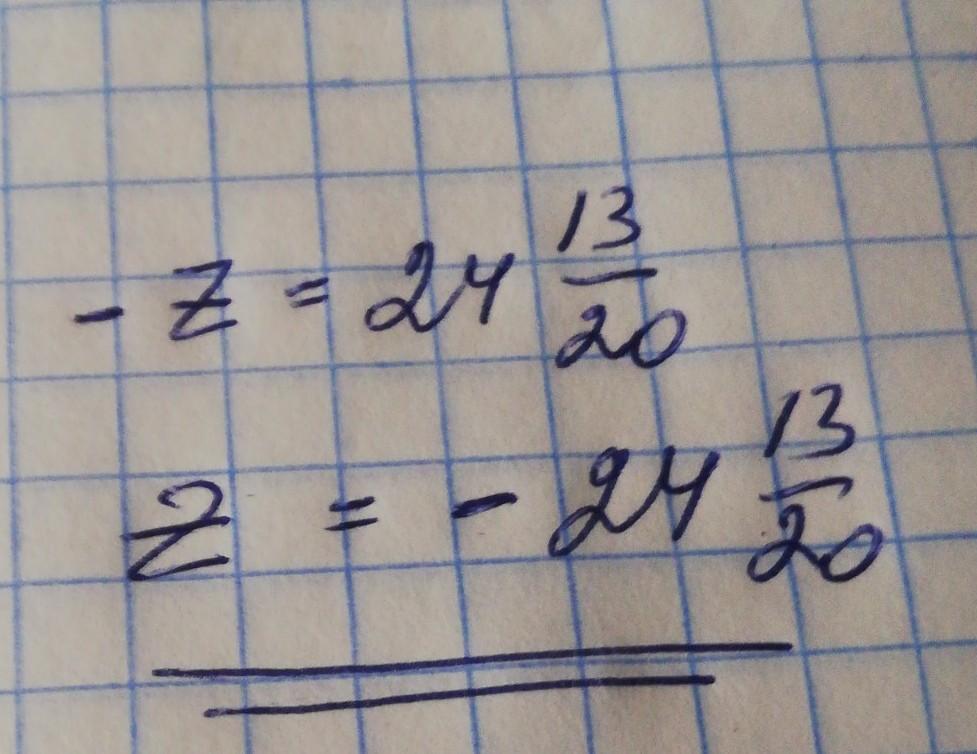 - z = 24 13/20
z = - 24 13/20